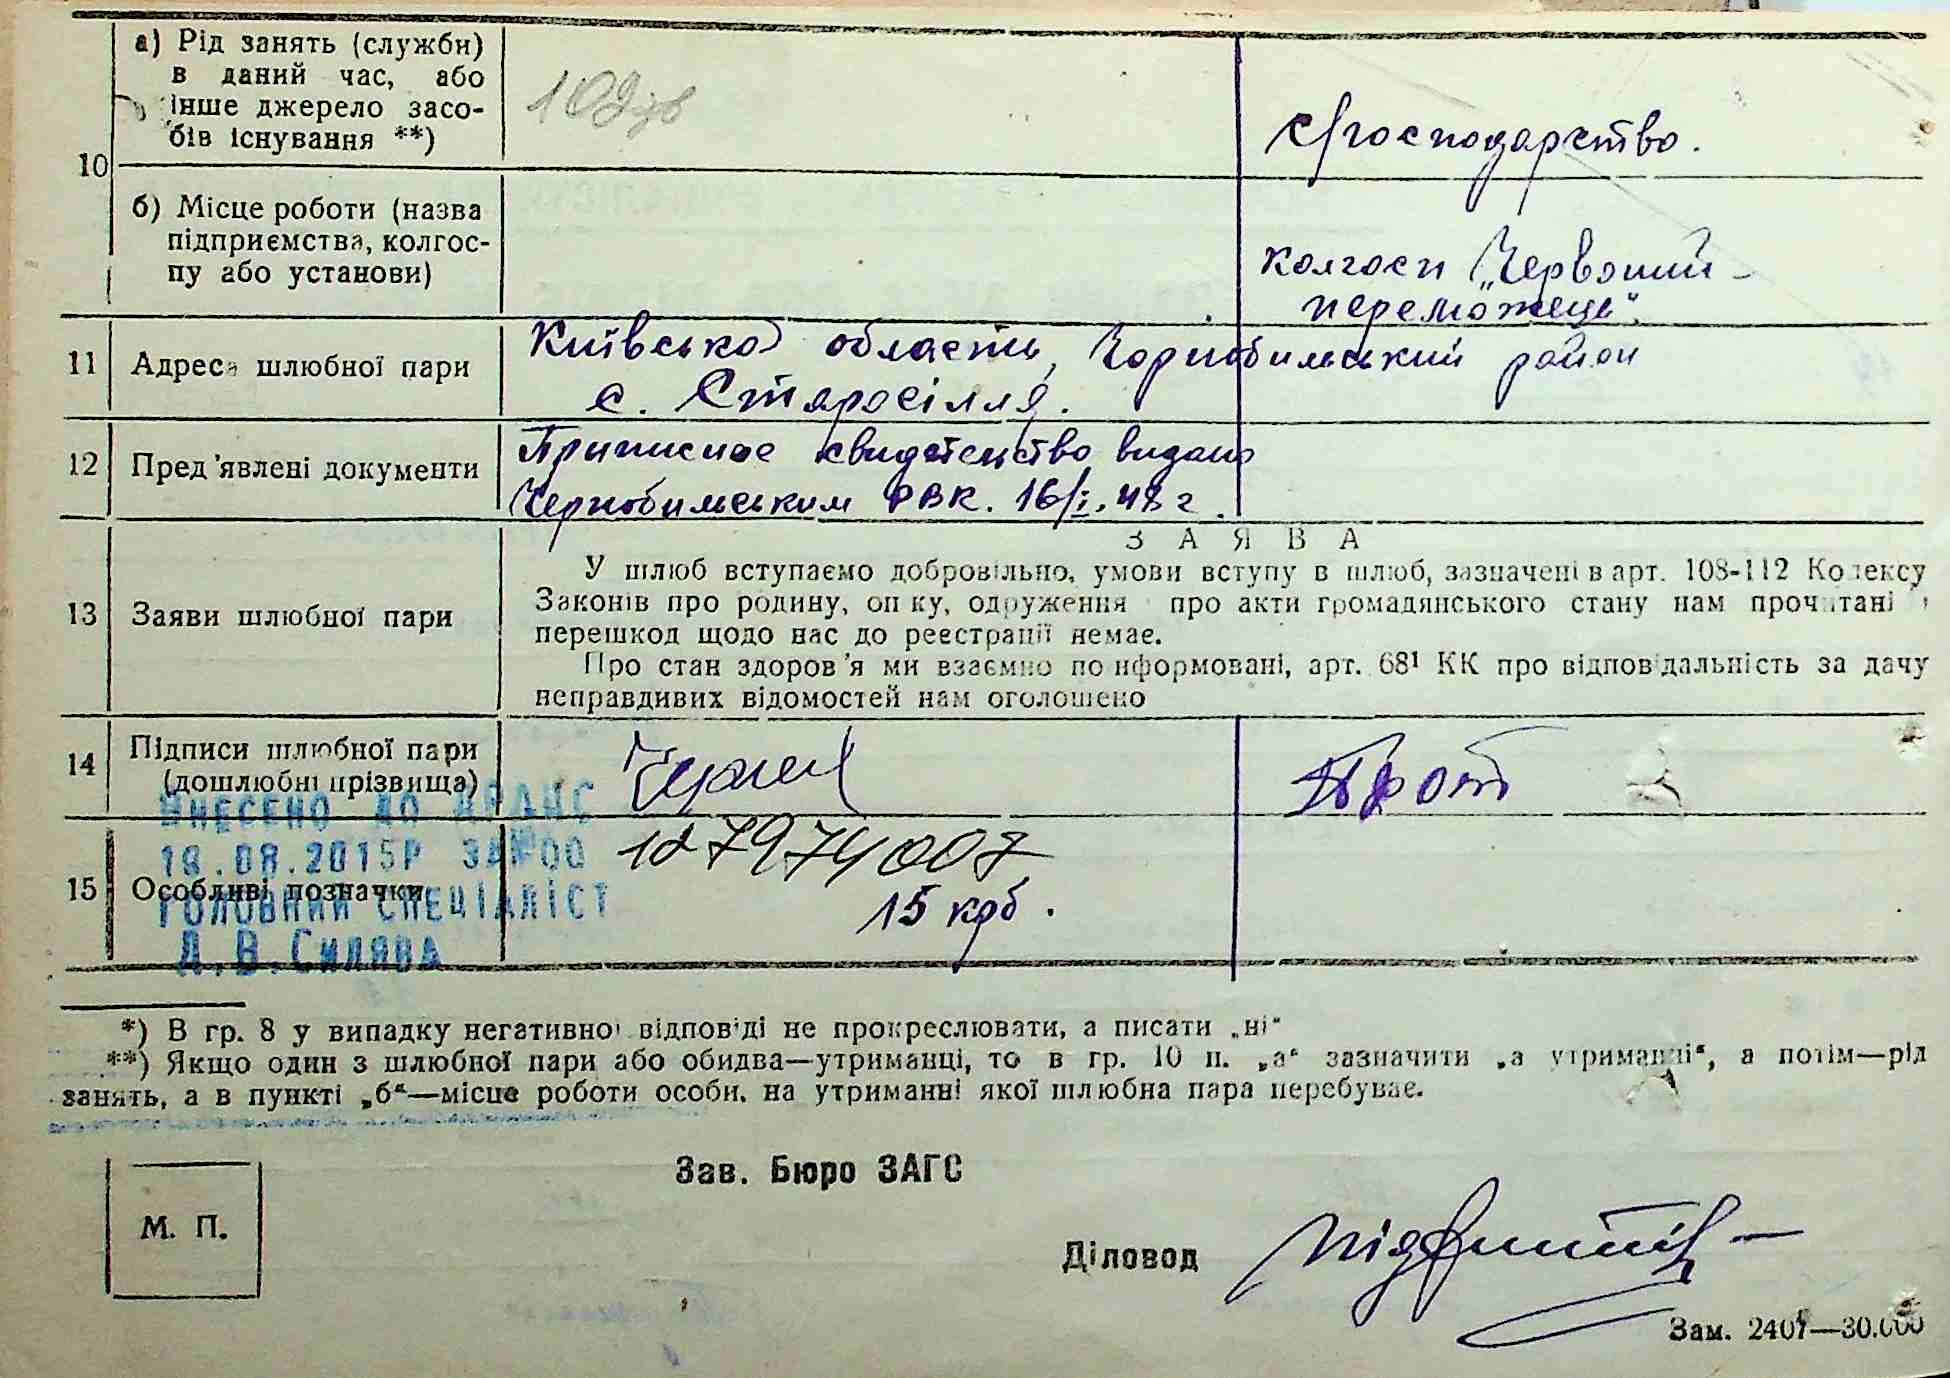 10
а) Рід занять (служби)
в даний час, або
інше джерело засо-
бів існування **)
с/господарство.
б) Місце роботи (назва
підприємства, колгос-
пу або установи)
колгосп „Червоний
переможець".
11 Адреса шлюбної пари
Київська область, Чорнобильський район
с. Старосілля.
12 Пред'явлені документи
Приписное свидетельство видано
Чернобильським РВК. 16/I. 48 г.
ЗАЯВА
13 Заяви шлюбної пари
У шлюб вступаємо добровільно, умови вступу в шлюб, зазначені в арт. 108-112 Кодексу
Законів про родину, опіку, одруження про акти громадянського стану нам прочитані і
перешкод щодо нас до реєстрації немає.
Про стан здоров'я ми взаємно поінформовані, арт. 68¹ КК про відповідальність за дачу
неправдивих відомостей нам оголошено
14 Підписи шлюбної пари
(дошлюбні прізвища)
ВНЕСЕНО ДО ДРАЦС
18.08.2015Р
15 Особливі позначки
127974007
15 крб.
ГОЛОВНИЙ СПЕЦІАЛІСТ
Л.В.Силява
*) В гр. 8 у випадку негативної відповіді не прокреслювати, а писати „ні"
**) Якщо один з шлюбної пари або обидва—утриманці, то в гр. 10 п. „а" зазначити „а утриманні", а потім—рід
занять, а в пункті „б"—місце роботи особи, на утриманні якої шлюбна пара перебуває.
Зав. Бюро ЗАГС
М. П.
Діловод
Зам. 2407—30.000